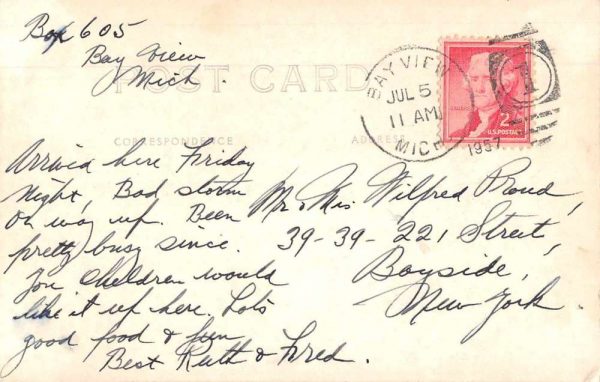 Box 605
Bay View
Mich.
POST CARD
CORRESPONDENCE
ADDRESS
BAY VIEW
JUL 5
11 AM
MICH
1957
1
2¢
U.S. POSTAGE
Arrived here Friday
night, Bad storm
on way up. Been
pretty busy since.
You children would
like it up here. Lots
good food & fun
Best Ruth & Fred.
Mr. & Mrs. Wilfred Proud,
39-39-221 Street,
Bayside,
New York.